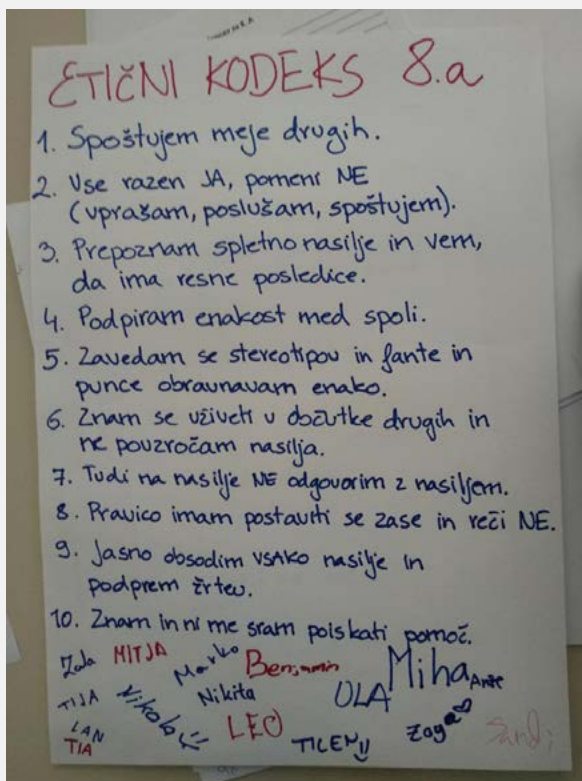 ETIČNI KODEKS 8.a
1. Spoštujem meje drugih.
2. Vse razen JA, pomeni NE
(vprašam, poslušam, spoštujem).
3. Prepoznam spletno nasilje in vem,
da ima resne posledice.
4. Podpiram enakost med spoli.
5. Zavedam se stereotipov in fante in
punce obravnavam enako.
6. Znam se vživeti v občutke drugih in
ne povzročam nasilja.
7. Tudi na nasilje NE odgovorim z nasiljem.
8. Pravico imam postaviti se zase in reči NE.
9. Jasno obsodim VSAKO nasilje in
podprem žrtev.
10. Znam in ni me sram poiskati pomoč.
Zala MITJA Marko Benjamin Miha Anže
TIJA Nikola Nikita OLA
LAN LEO Zoja
TIA TILEN Sandi